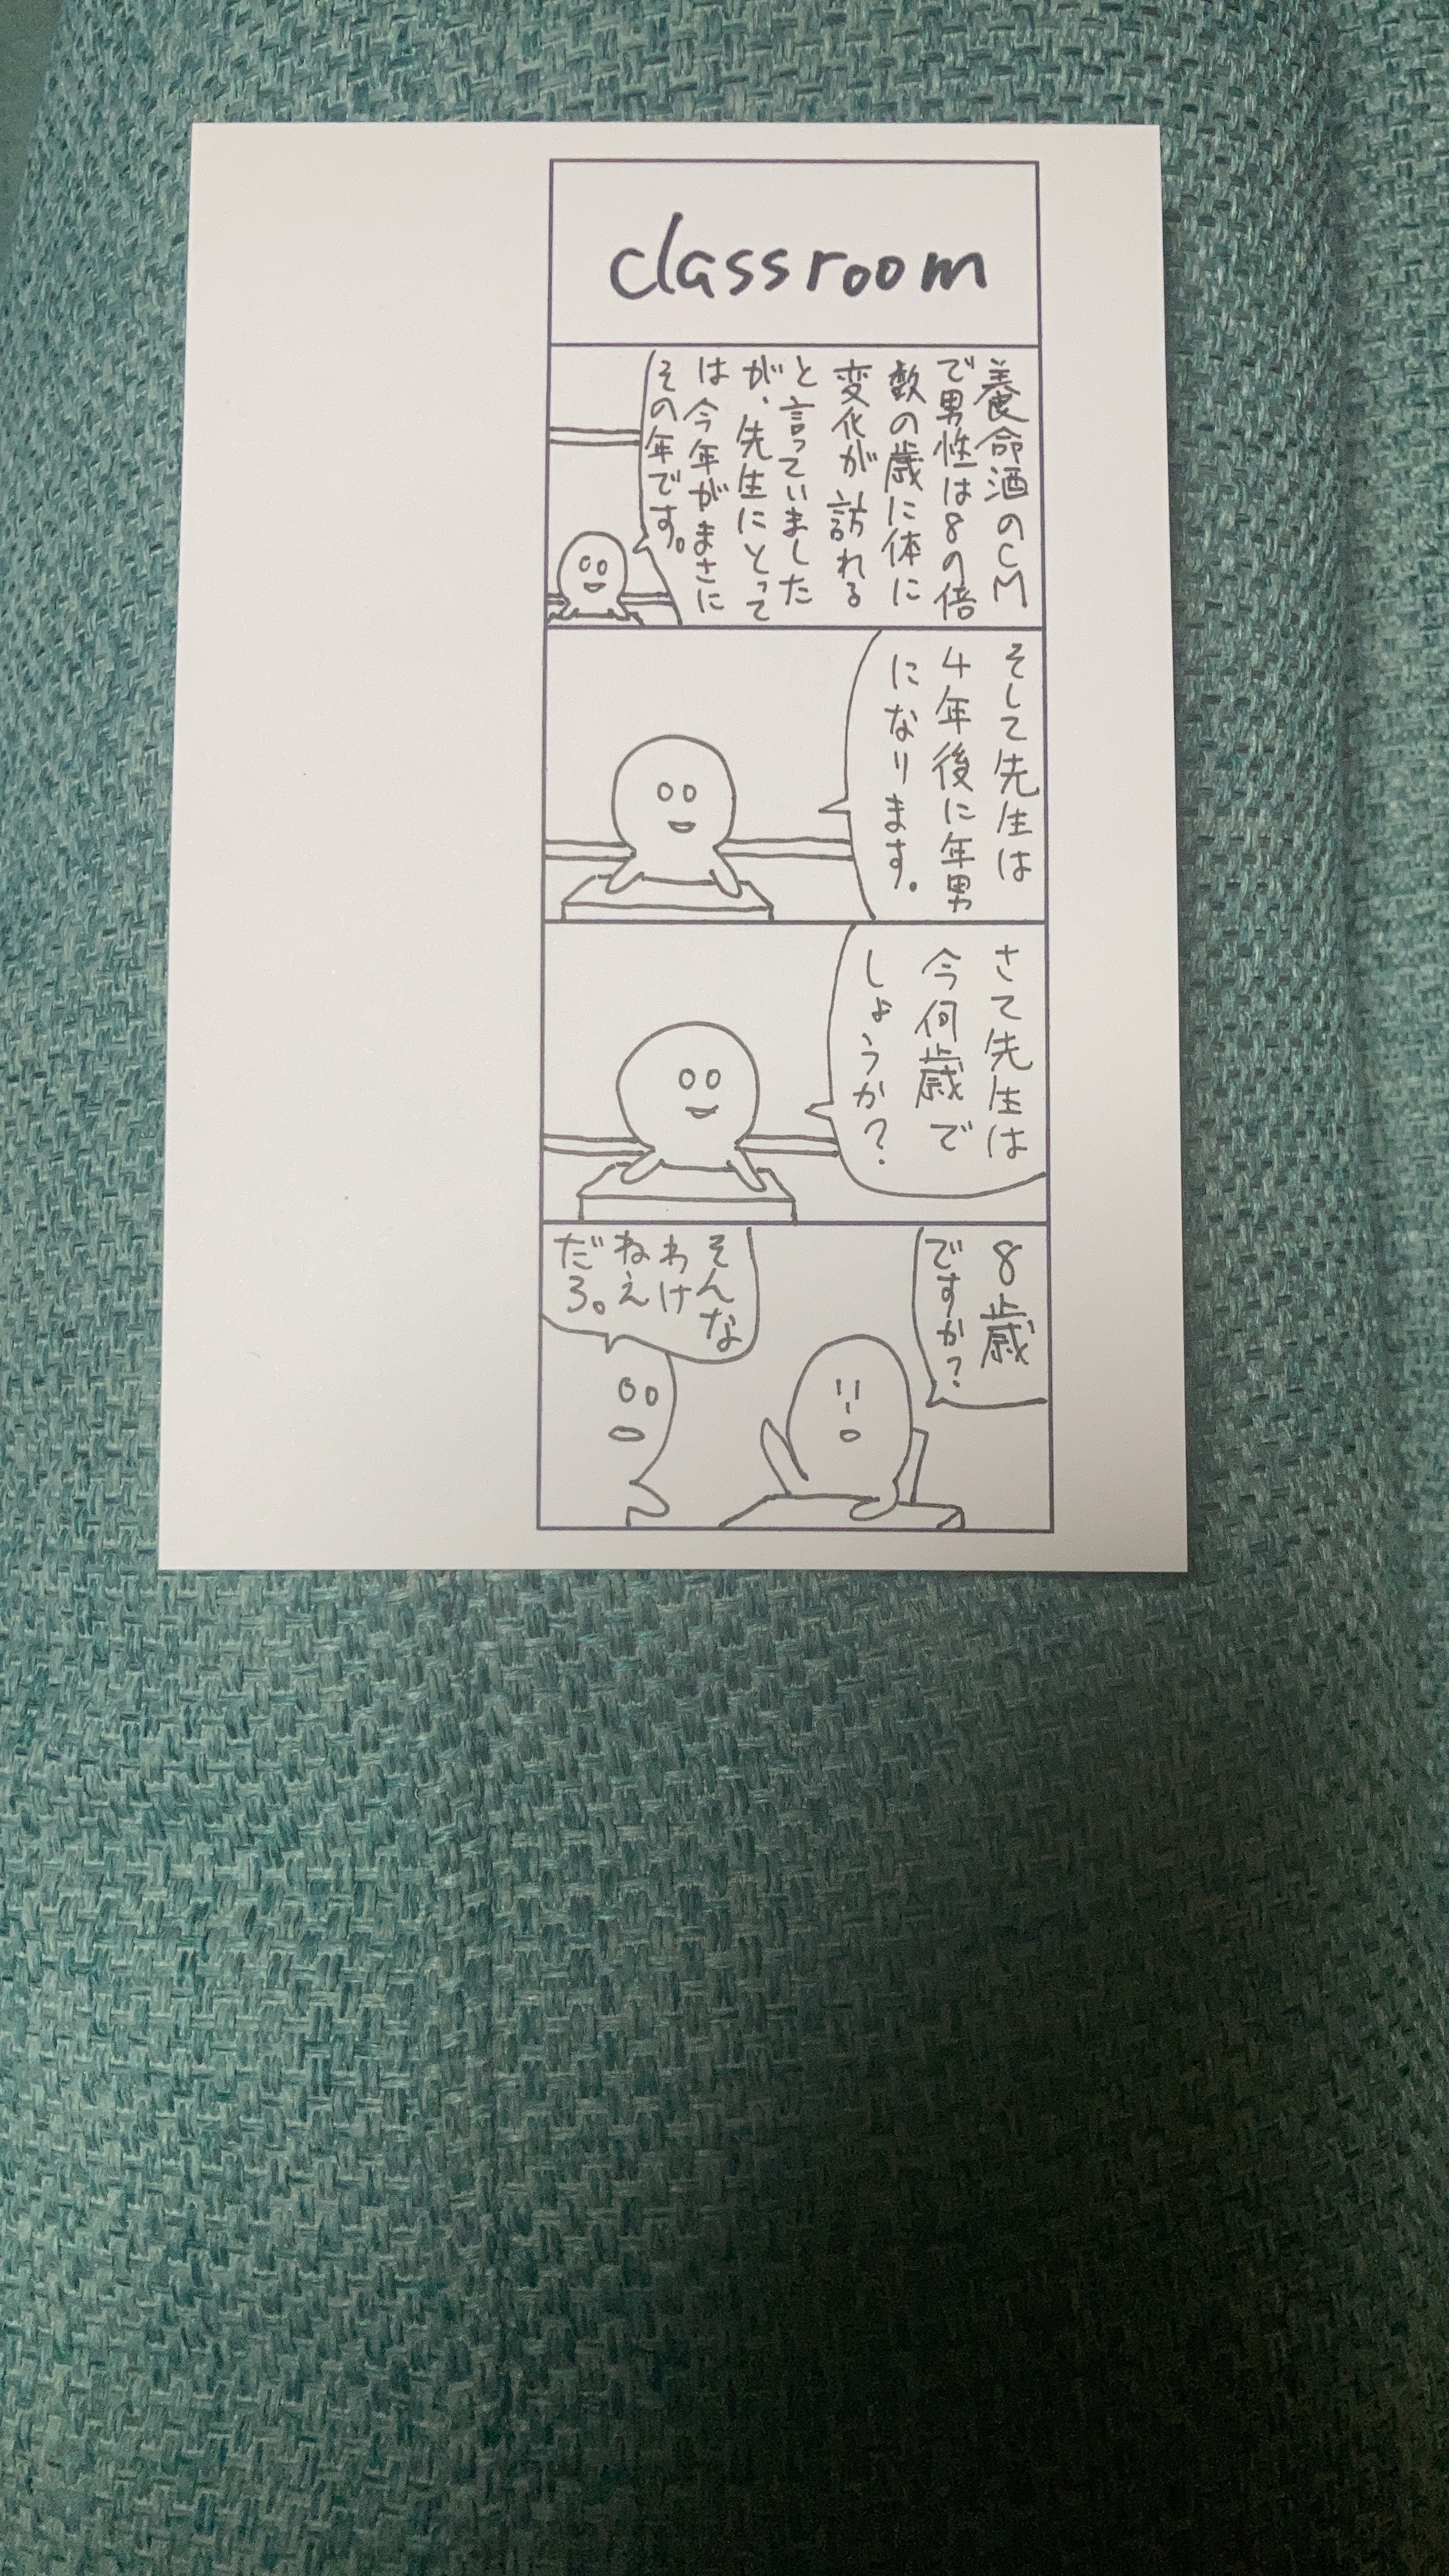 classroom
養命酒のCM
で男性は8の倍
数の歳に体に
変化が訪れる
と言っていました
が、先生にとって
は今年がまさに
その年です。
そして先生は
4年後に年男
になります。
さて先生は
今何歳で
しょうか?
8歳
ですか?
そんな
わけ
ねえ
だろ。